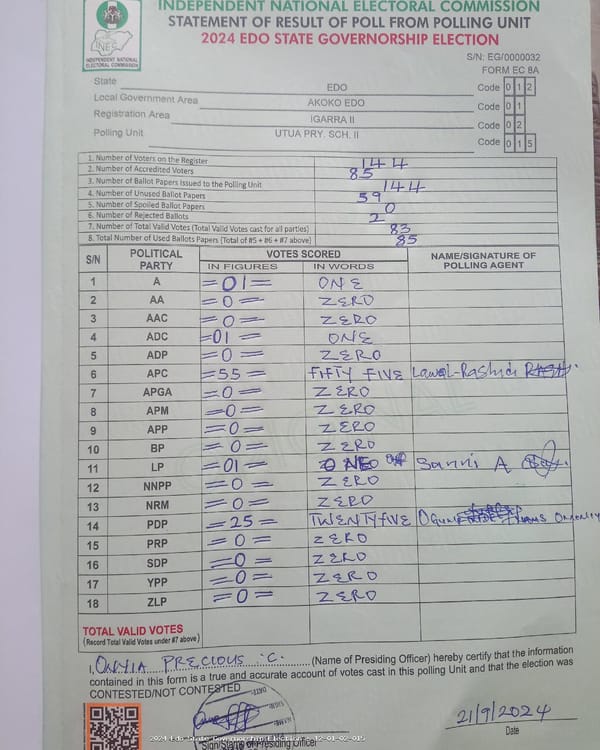 INDEPENDENT NATIONAL ELECTORAL COMMISSION
STATEMENT OF RESULT OF POLL FROM POLLING UNIT
2024 EDO STATE GOVERNORSHIP ELECTION
INEC
INDEPENDENT NATIONAL
ELECTORAL COMMISSION
S/N: EG/0000032
FORM EC 8A
State EDO Code 0 1 2
Local Government Area AKOKO EDO Code 0 1
Registration Area IGARRA II Code 0 2
Polling Unit UTUA PRY. SCH. II Code 0 1 5
1. Number of Voters on the Register 144
2. Number of Accredited Voters 85
3. Number of Ballot Papers Issued to the Polling Unit 144
4. Number of Unused Ballot Papers 59
5. Number of Spoiled Ballot Papers 0
6. Number of Rejected Ballots 2
7. Number of Total Valid Votes (Total Valid Votes cast for all parties) 83
8. Total Number of Used Ballots Papers (Total of #5 + #6 + #7 above) 85
S/N POLITICAL PARTY VOTES SCORED NAME/SIGNATURE OF POLLING AGENT
IN FIGURES IN WORDS
1 A =01= ONE
2 AA =0= ZERO
3 AAC =0= ZERO
4 ADC =01= ONE
5 ADP =0= ZERO
6 APC =55= FIFTY FIVE Lawal-Rashidi
7 APGA =0= ZERO
8 APM =0= ZERO
9 APP =0= ZERO
10 BP =0= ZERO
11 LP =01= ONE Sanni A
12 NNPP =0= ZERO
13 NRM =0= ZERO
14 PDP =25= TWENTYFIVE
15 PRP =0= ZERO
16 SDP =0= ZERO
17 YPP =0= ZERO
18 ZLP =0= ZERO
TOTAL VALID VOTES
(Record Total Valid Votes under #7 above)
I, ONYIA PRECIOUS .C. (Name of Presiding Officer) hereby certify that the information
contained in this form is a true and accurate account of votes cast in this polling Unit and that the election was
CONTESTED/NOT CONTESTED
21/9/2024
Date
2024 Edo State Governorship Election - 12-01-02-015
Sign/Stamp of Presiding Officer